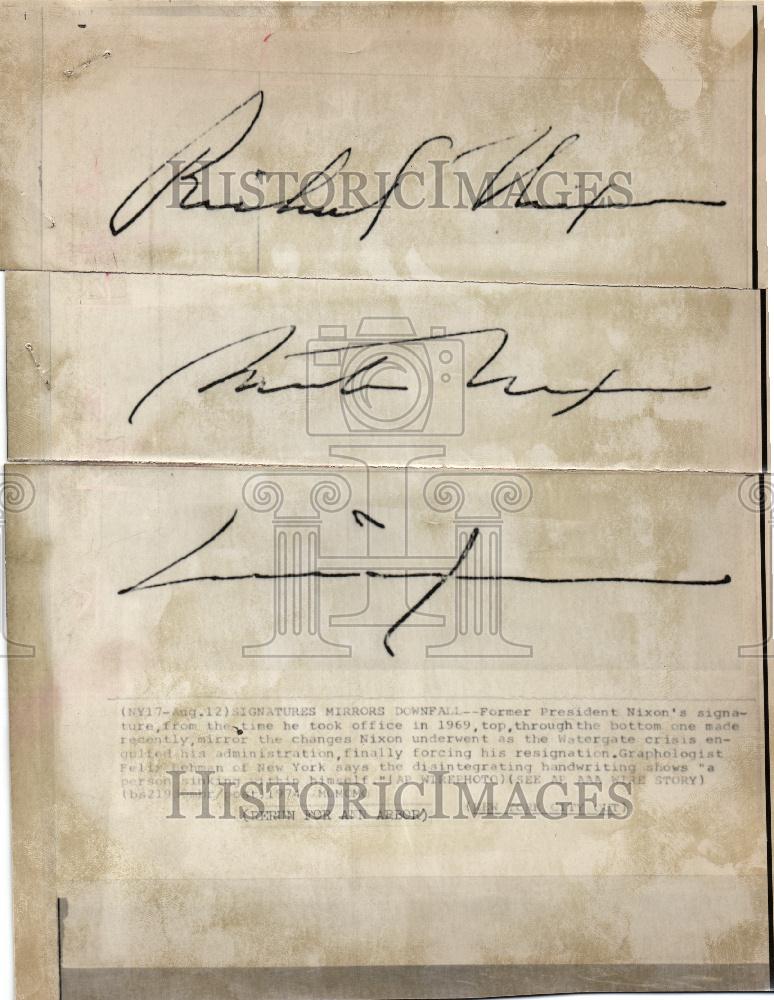 Richard Nixon
HISTORIC IMAGES
HISTORIC IMAGES
(NY17-Aug.12)SIGNATURES MIRRORS DOWNFALL--Former President Nixon's signa-
ture,from the time he took office in 1969,top,through the bottom one made
recently,mirror the changes Nixon underwent as the Watergate crisis en-
gulfed his administration,finally forcing his resignation.Graphologist
Felix Lehman of New York says the disintegrating handwriting shows "a
person sinking within himself."(AP WIREPHOTO)(SEE AP AAA WIRE STORY)
1974
(RERUN FOR ANN ARBOR)